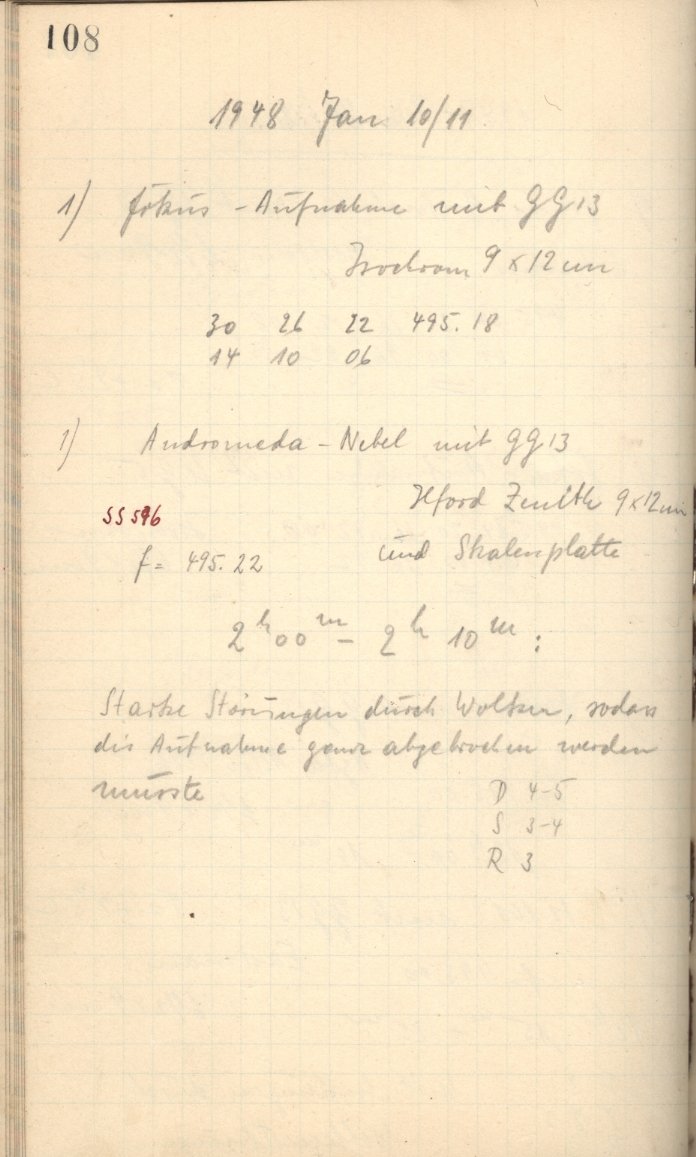 108
1948 Jan 10/11
1) Fokus - Aufnahme mit GG13
Isochrom 9 x 12 cm
30 26 22 495.18
14 10 06
1) Andromeda - Nebel mit GG13
Ilford Zenith 9x12cm
SS 596
und Skalenplatte
f = 495.22
2h 00m - 2h 10m :
Starke Störungen durch Wolken, sodass
die Aufnahme ganz abgebrochen werden
musste
D 4-5
S 3-4
R 3